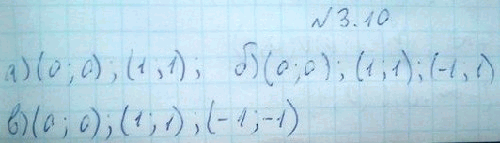 N3.10
а)(0;0);(1;1); б)(0;0);(1;1);(-1;1)
в)(0;0);(1;1);(-1;-1)